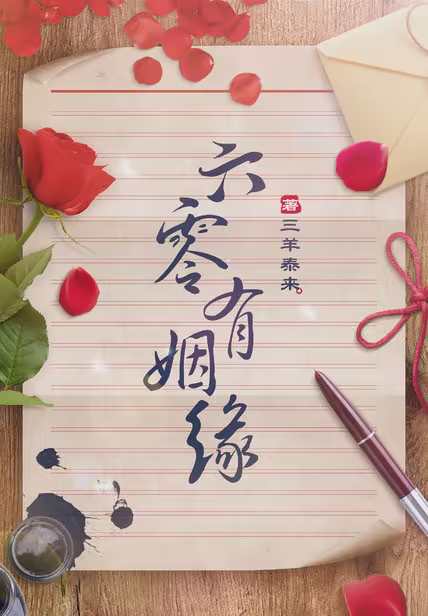 六零有姻缘
著三羊泰来